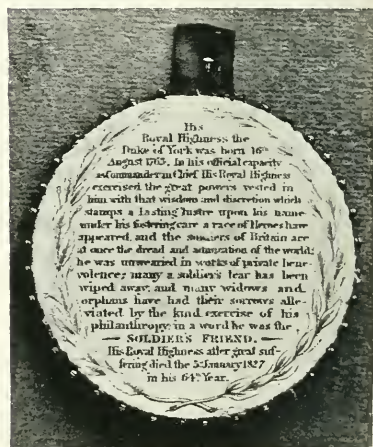 His
Royal Highness the
Duke of York was born 16th
August 1763. In his official capacity
as Commander in Chief His Royal Highness
exercised the great powers vested in
him with that wisdom and discretion which
stamps a lasting lustre upon his name
under his fostering care a race of Heroes have
appeared, and the soldiers of Britain are
at once the dread and admiration of the world;
he was unwearied in works of private bene-
volence; many a soldier's tear has been
wiped away, and many widows and
orphans have had their sorrows alle-
viated by the kind exercise of his
philanthropy, in a word he was the
— SOLDIER'S FRIEND. —
His Royal Highness after great suf-
fering died the 5th January 1827
in his 64th Year.